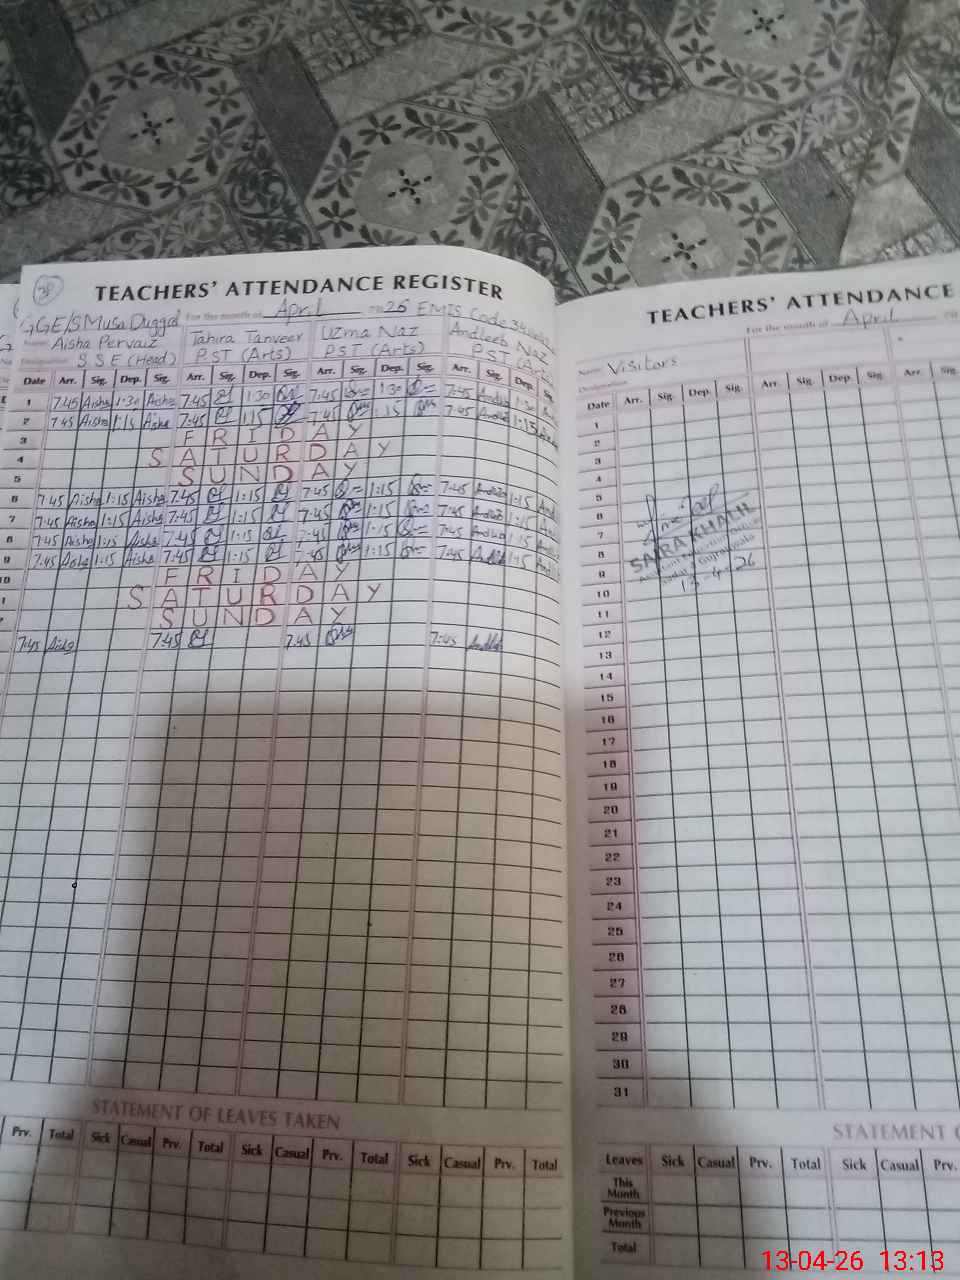 38
TEACHERS' ATTENDANCE REGISTER
GGE/S Musa Duggal For the month of April 2026 EMIS Code
Name Aisha Pervaiz Tahira Tanveer Uzma Naz Andleeb Naz
Designation S S E (Head) PST (Arts) PST (Arts) PST
Date Arr. Sig. Dep. Sig. Arr. Sig. Dep. Sig. Arr. Sig. Dep. Sig. Arr. Sig. Dep.
1 7:45 Aisha 1:30 Aisha 7:45 1:30 7:45 1:30 7:45
2 7:45 Aisha 1:15 Aisha 7:45 1:15 7:45 1:15 7:45 1:15
3 FRIDAY
4 SATURDAY
5 SUNDAY
6 7:45 Aisha 1:15 Aisha 7:45 1:15 7:45 1:15 7:45 1:15
7 7:45 Aisha 1:15 Aisha 7:45 1:15 7:45 1:15 7:45 1:15
8 7:45 Aisha 1:15 Aisha 7:45 1:15 7:45 1:15 7:45 1:15
9 7:45 Aisha 1:15 Aisha 7:45 1:15 7:45 1:15 7:45 1:15
10 FRIDAY
SATURDAY
SUNDAY
7:45 Aisha 7:45 7:45 7:45
STATEMENT OF LEAVES TAKEN
Prv. Total Sick Casual Prv. Total Sick Casual Prv. Total Sick Casual Prv. Total
TEACHERS' ATTENDANCE
For the month of April
Name Visitors
Designation
Date Arr. Sig. Dep. Sig. Arr. Sig. Dep. Sig. Arr. Sig.
1
2
3
4
5
6
7
8
9
10
11
12
13
14
15
16
17
18
19
20
21
22
23
24
25
26
27
28
29
30
31
SAIRA KHALIL
13-4-26
STATEMENT
Leaves Sick Casual Prv. Total Sick Casual Prv.
This Month
Previous Month
Total
13-04-26 13:13